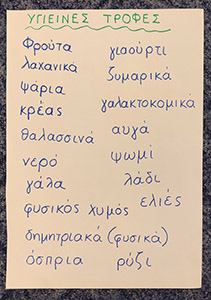 ΥΓΙΕΙΝΕΣ ΤΡΟΦΕΣ
Φρούτα γιαούρτι
λαχανικά ζυμαρικά
ψάρια γαλακτοκομικά
κρέας αυγά
θαλασσινά ψωμί
νερό λάδι
γάλα ελιές
φυσικός χυμός
δημητριακά (φυσικά)
όσπρια ρύζι